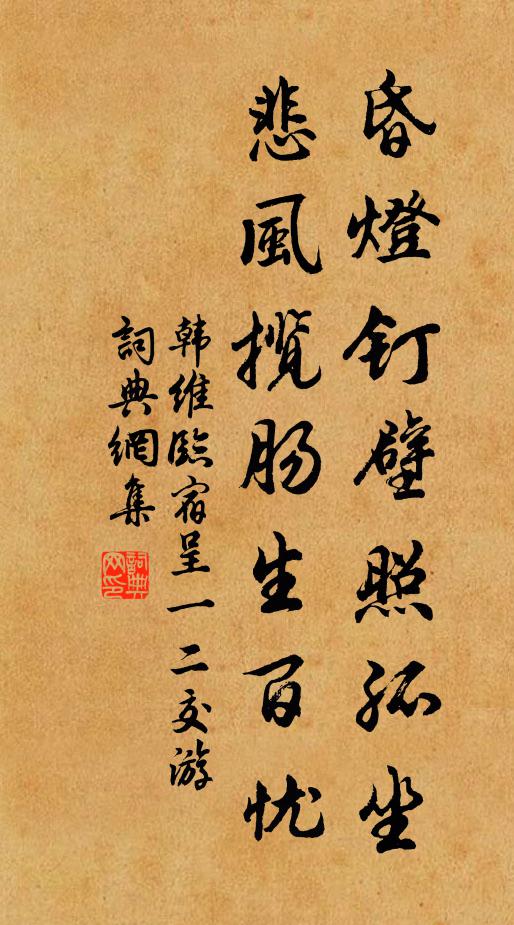 昏燈钉壁照孤坐
悲風攬肠生百忧
韩维臨宿呈一二交游
詞典網集
詞典網印